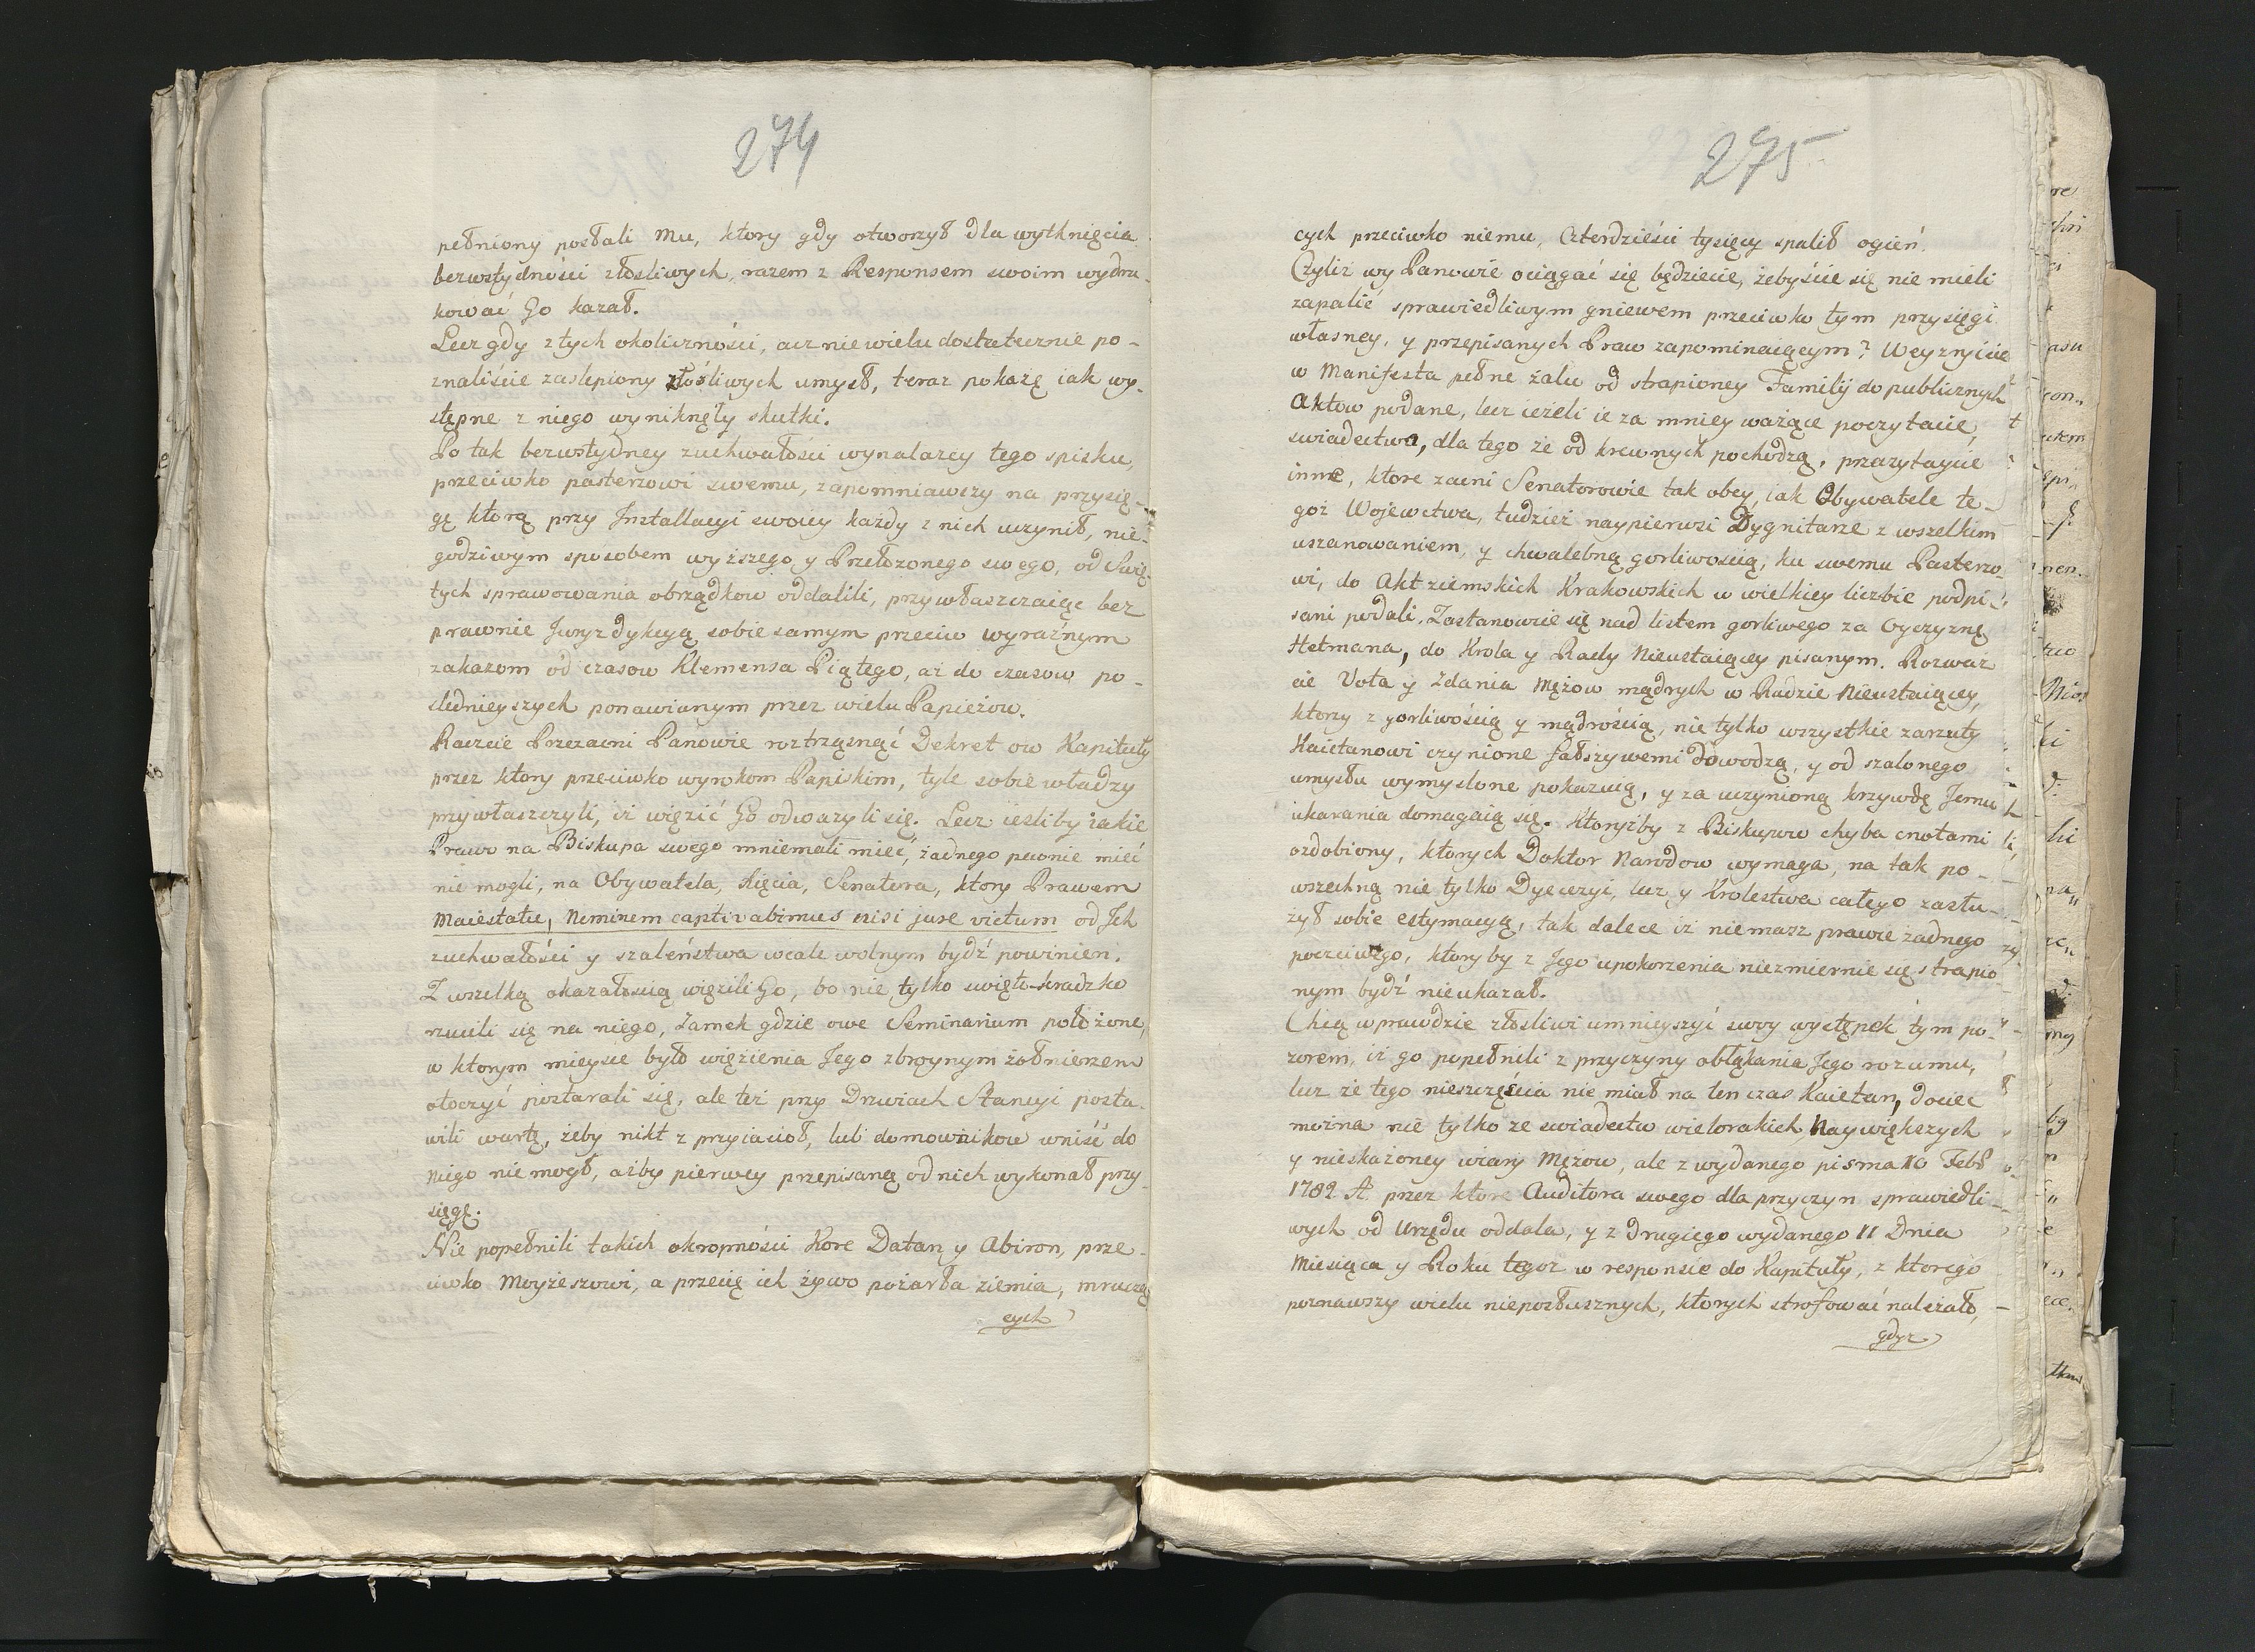 274
pełniony posłali Mu, ktory gdy otworzył dla wytknięcia
bezwstydności złosliwych, razem z Responsem swoim wydru-
kować Go kazał.
Lecz gdy z tych okoliczności, acz niewielu dostatecznie po-
znaliście zaslepiony złośliwych umysł, teraz pokażę iak wy-
stępne z niego wyniknęły skutki.
Po tak bezwstydney zuchwałości wynalazcy tego spisku,
przeciwko pasterzowi swemu, zapomniawszy na przysię-
gę ktorą przy Installacyi swoiey każdy z nich uczynił, nie-
godziwym sposobem wyższego y Przełożonego swego, od Swię-
tych sprawowania obrządkow oddalili, przywłaszczaiąc bez
prawnie Juryzdykcyą sobie samym przeciw wyraźnym
zakazom od czasow Klemensa Piątego, aż do czasow po-
slednieyszych ponawianym przez wielu Papieżow.
Raczcie Przezacni Panowie roztrząsnąć Dekret ow Kapituły
przez ktory przeciwko wyrokom Papiskim, tyle sobie władzy
przywłaszczyli, iż więzić Go odważyli się. Lecz iesliby iakie
Prawo na Biskupa swego mniemali mieć, żadnego pewnie mieć
nie mogli, na Obywatela, Xięcia, Senatora, ktory Prawem
Maiestatu, Neminem captivabimus nisi jure victum od Jch
zuchwałości y szaleństwa wcale wolnym bydź powinien.
Z wszelką okazałoscią więzili Go, bo nie tylko swięto-kradzko
rzucili się na niego, Zamek gdzie owe Seminarium położone,
w ktorym mieysce było więzienia Jego zbroynym żołnierzem
otoczyć postarali się, ale też przy Drzwiach Stancyi posta-
wili wartę, żeby nikt z przyiacioł, lub domownikow wniść do
Niego nie mogł, ażby pierwey przepisaną od nich wykonał przy-
sięgę.
Nie popełnili takich okropności Kore Datan y Abiron, prze-
ciwko Moyżeszowi, a przecię ich żywo pożarła ziemia, mruczą
cych
275
cych przeciwko niemu, Czterdzieści tysięcy spalił ogień.
Czyliż wy Panowie ociągać się będziecie, żebyście się nie mieli
zapalić sprawiedliwym gniewem przeciwko tym przysięgi
własney, y przepisanych Praw zapominaiącym? Weyzrzyicie
w Manifesta pełne żalu od strapioney Familij do publicznych
Aktow podane, lecz ieżeli ie za mniey ważące poczytacie,
swiadectwa, dla tego że od krewnych pochodzą, przeczytaycie
inne, ktore zacni Senatorowie tak obcy, iak Obywatele te-
goż Wojewctwa, tudzież naypierwsi Dygnitarze z wszelkim
uszanowaniem, y chwalebną gorliwoscią, ku swemu Pasterzo-
wi, do Akt ziemskich Krakowskich w wielkiey liczbie podpi-
sani podali. Zastanowcie się nad listem gorliwego za Oyczyznę
Hetmana, do Krola y Rady Nieustaiącey pisanym. Rozważ
cie Vota y Zdania Mężow mądrych w Radzie Nieustaiącey,
ktorzy z gorliwością y mądrością, nie tylko wszystkie zarzuty
Kaietanowi czynione fałszywemi dowodzą, y od szalonego
umysłu wymyslone pokazuią, y za uczynioną krzywdę Jemu
ukarania domagaią się. Ktoryżby z Biskupow chyba cnotami
ozdobiony, ktorych Doktor Narodow wymaga, na tak po-
wszechną nie tylko Dyecezyi, lecz y Krolestwa całego zasłu-
żył sobie estymacyą, tak dalece iż niemasz prawie żadnego
poczciwego, ktory by z Jego upokorzenia niezmiernie się strapio
nym bydź nieukazał.
Chcą wprawdzie złosliwi umnieyszyć swoy występek tym po-
zorem, iż go popełnili z przyczyny obłąkania Jego rozumu,
lecz że tego nieszczęścia nie miał na ten czas Kaietan, dociec
można nie tylko ze swiadectw wielorakich, Naywiększych
y nieskażoney wiary Mężow, ale z wydanego pisma 10 Febr
1782 A. przez ktore Auditora swego dla przyczyn sprawiedli-
wych od Urzędu oddala, y z Drugiego wydanego 11 Dnia
Miesiąca y Roku tegoż w responsie do Kapituły, z ktorego
poznawszy wielu nieposłusznych, ktorych strofować należało,
gdyż